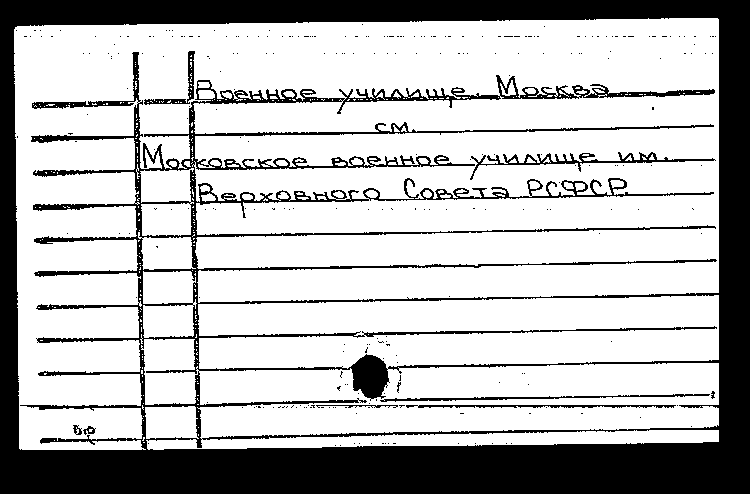 Военное училище. Москва
см.
Московское военное училище им.
Верховного Совета РСФСР